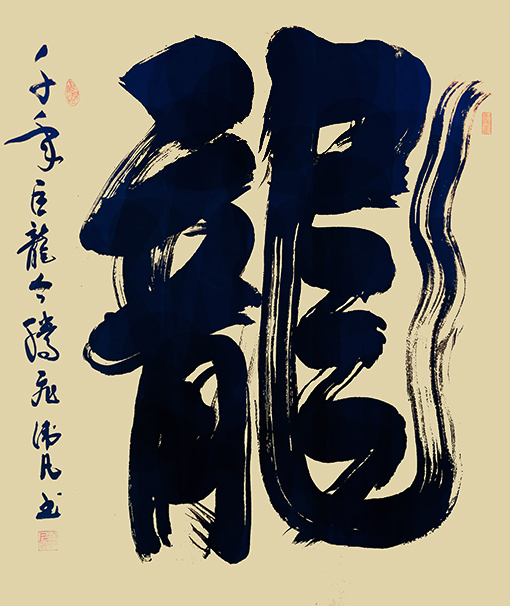 龍
千年巨龍今騰飛
凡书